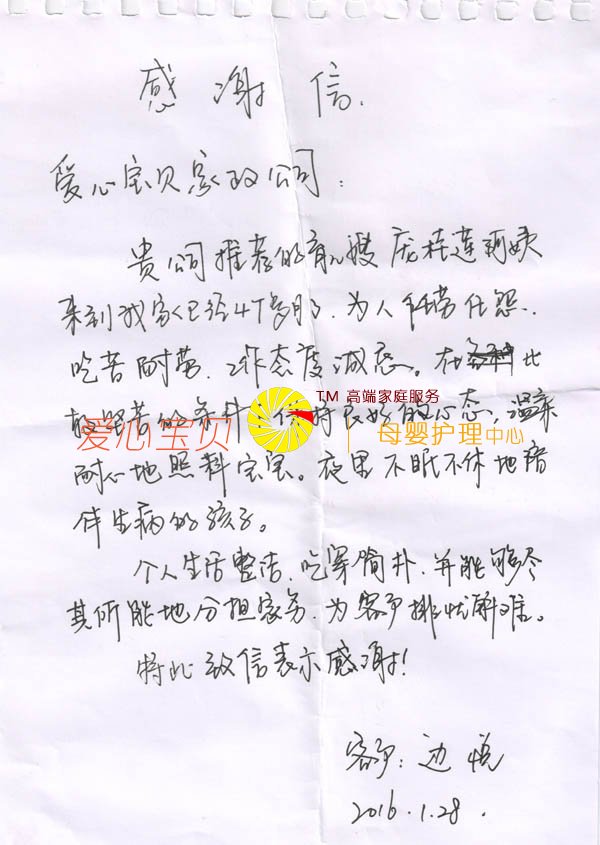 感谢信.
爱心宝贝家政公司:
贵公司推荐的育儿嫂庞桂莲阿姨
来到我家已经4个多月了.为人任劳任怨.
吃苦耐劳.工作态度诚恳。在比
较坚苦的条件下保持良好的心态,温柔
耐心地照料宝宝。夜里不眠不休地陪
伴生病的孩子。
个人生活整洁.吃穿简朴.并能够尽
其所能地分担家务.为客户排忧解难。
特此致信表示感谢!
客户:边悦
2016.1.28.
爱心宝贝
TM 高端家庭服务
母婴护理中心